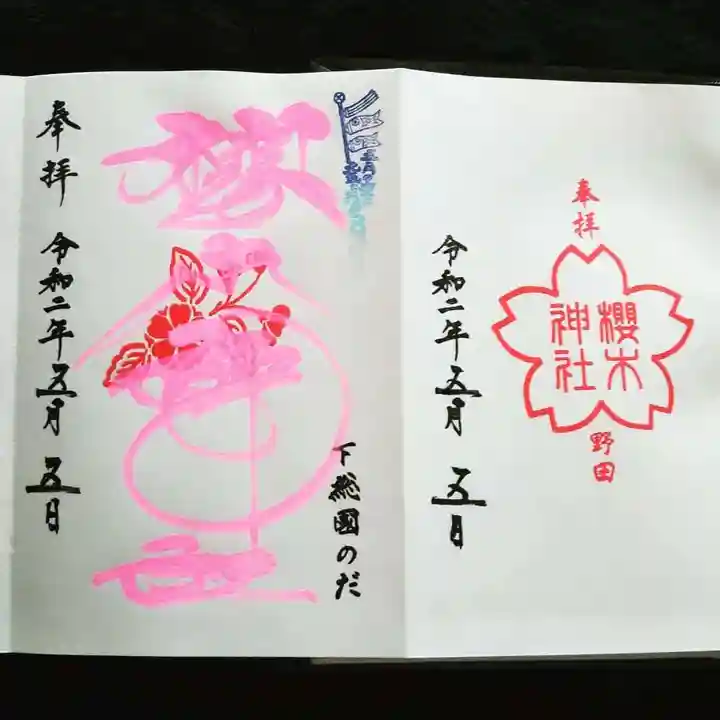 奉拝
令和二年五月五日
下総國のだ
奉拝
櫻木
神社
野田
令和二年五月五日